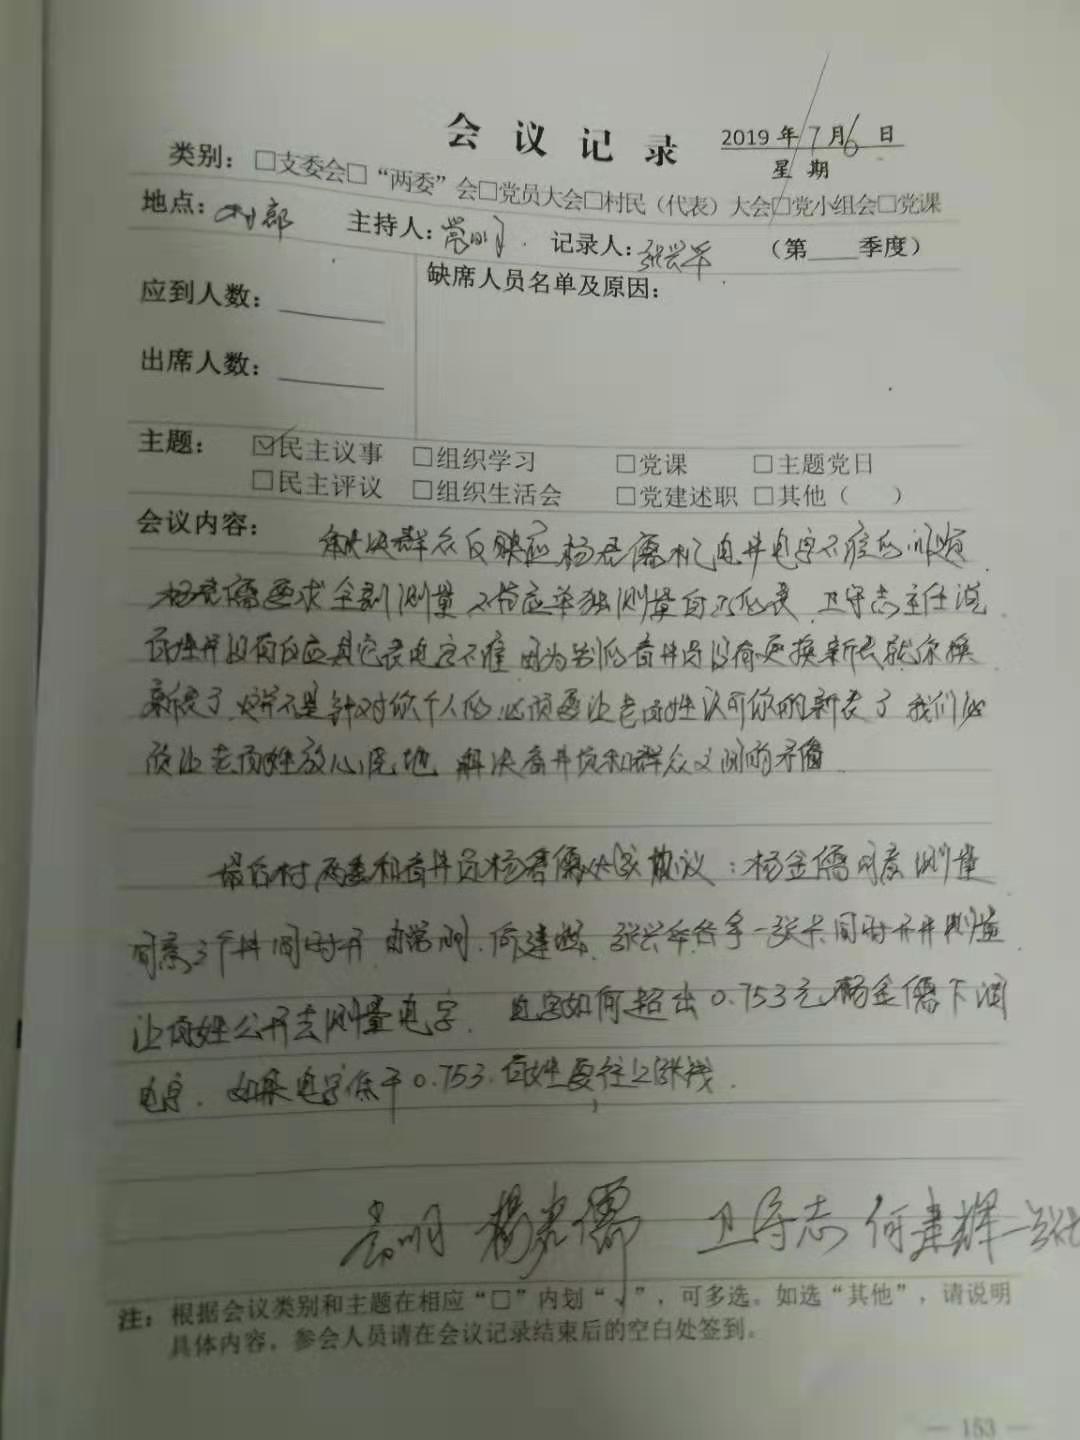 会议记录
2019年7月6日
星期
类别：□支委会□“两委”会□党员大会□村民（代表）大会□党小组会□党课
地点：村部 主持人： 记录人：张兴华 （第 季度）
应到人数：
缺席人员名单及原因：
出席人数：
主题： ☑民主议事 □组织学习 □党课 □主题党日
□民主评议 □组织生活会 □党建述职 □其他（ ）
会议内容： 解决群众反映 杨 儒机电井电字不准的问题
杨 儒要求全部测量 不答应单独测量自己的表 卫守志主任说
百姓并没有反应其它表电字不准 因为别的看井员没有更换新表就你换
新表了 并不是针对你个人的 必须要让老百姓认可你的新表了 我们必
须让老百姓放心浇地 解决看井员和群众之间的矛盾
最后村两委和看井员杨 儒达成协议：杨金儒同意测量
同意3个井同时开 由常明、何建辉、张兴华各拿一张卡同时开井测量
让百姓公开去测量电字 电字如何超出0.753元 杨金儒下调
电字. 如果电字低于0.753.百姓要往上涨钱.
常明 杨 儒 卫守志 何建辉 张
注：根据会议类别和主题在相应“□”内划“√”，可多选。如选“其他”，请说明
具体内容，参会人员请在会议记录结束后的空白处签到。
— 153 —